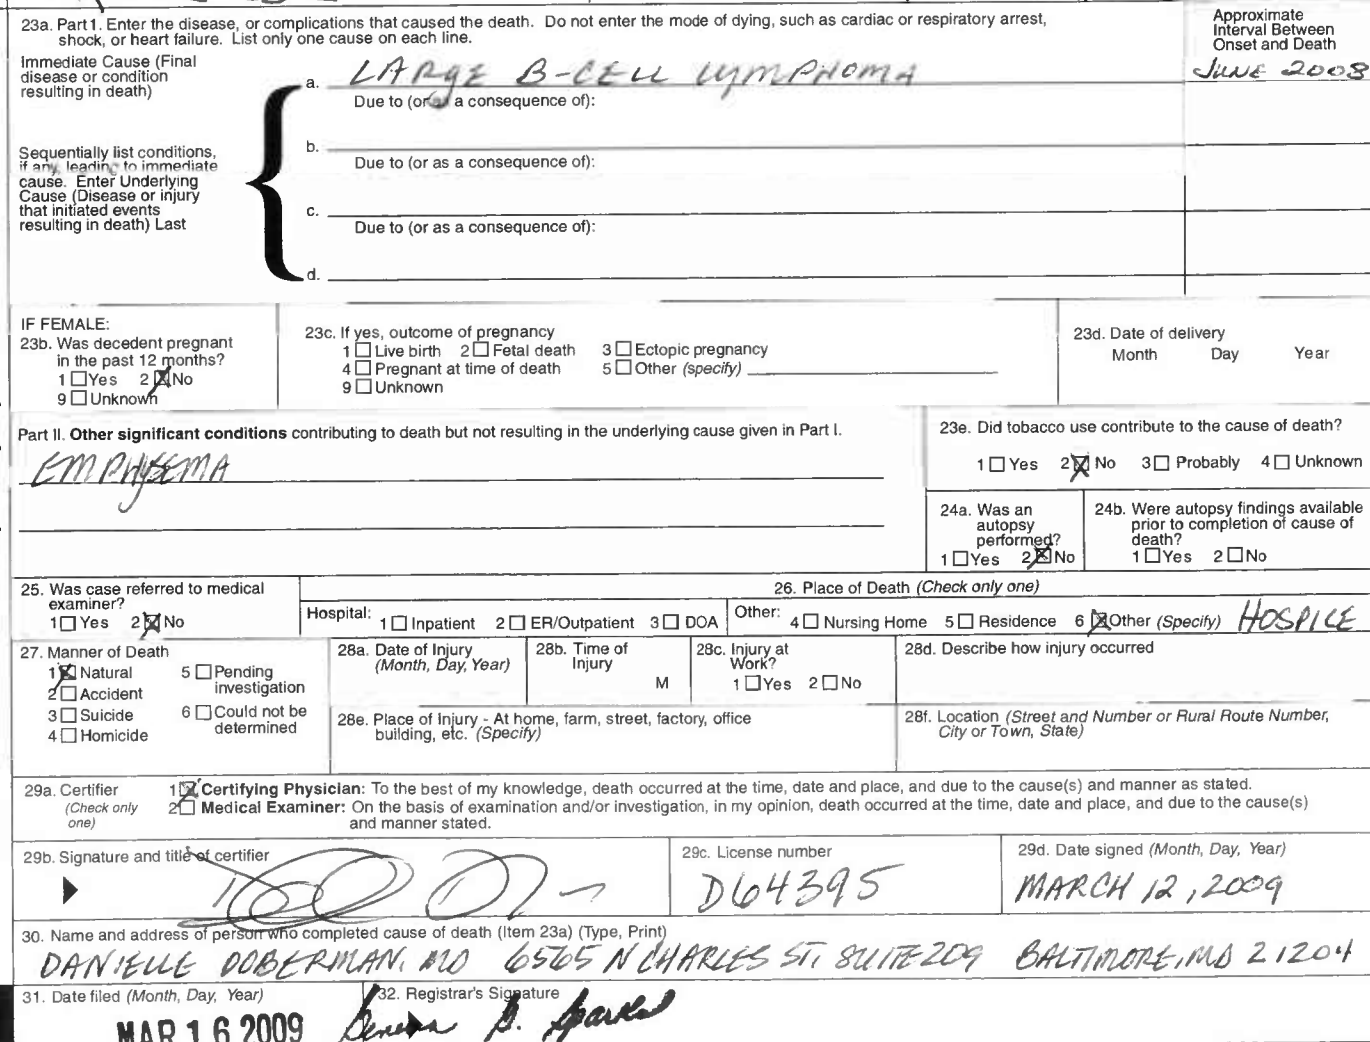 23a. Part 1. Enter the disease, or complications that caused the death. Do not enter the mode of dying, such as cardiac or respiratory arrest,
shock, or heart failure. List only one cause on each line.
Approximate
Interval Between
Onset and Death
Immediate Cause (Final
disease or condition
resulting in death)
a. LARGE B-CELL LYMPHOMA
JUNE 2008
Due to (or as a consequence of):
Sequentially list conditions,
if any, leading to immediate
cause. Enter Underlying
Cause (Disease or injury
that initiated events
resulting in death) Last
b.
Due to (or as a consequence of):
c.
Due to (or as a consequence of):
d.
IF FEMALE:
23b. Was decedent pregnant
in the past 12 months?
1 ☐ Yes 2 ☒ No
9 ☐ Unknown
23c. If yes, outcome of pregnancy
1 ☐ Live birth 2 ☐ Fetal death 3 ☐ Ectopic pregnancy
4 ☐ Pregnant at time of death 5 ☐ Other (specify)
9 ☐ Unknown
23d. Date of delivery
Month Day Year
Part II. Other significant conditions contributing to death but not resulting in the underlying cause given in Part I.
EMPHYSEMA
23e. Did tobacco use contribute to the cause of death?
1 ☐ Yes 2 ☒ No 3 ☐ Probably 4 ☐ Unknown
24a. Was an
autopsy
performed?
1 ☐ Yes 2 ☒ No
24b. Were autopsy findings available
prior to completion of cause of
death?
1 ☐ Yes 2 ☐ No
25. Was case referred to medical
examiner?
1 ☐ Yes 2 ☒ No
26. Place of Death (Check only one)
Hospital: 1 ☐ Inpatient 2 ☐ ER/Outpatient 3 ☐ DOA Other: 4 ☐ Nursing Home 5 ☐ Residence 6 ☒ Other (Specify) HOSPICE
27. Manner of Death
1 ☒ Natural 5 ☐ Pending
investigation
2 ☐ Accident
3 ☐ Suicide 6 ☐ Could not be
determined
4 ☐ Homicide
28a. Date of Injury
(Month, Day, Year)
28b. Time of
Injury
M
28c. Injury at
Work?
1 ☐ Yes 2 ☐ No
28d. Describe how injury occurred
28e. Place of Injury - At home, farm, street, factory, office
building, etc. (Specify)
28f. Location (Street and Number or Rural Route Number,
City or Town, State)
29a. Certifier
(Check only
one)
1 ☒ Certifying Physician: To the best of my knowledge, death occurred at the time, date and place, and due to the cause(s) and manner as stated.
2 ☐ Medical Examiner: On the basis of examination and/or investigation, in my opinion, death occurred at the time, date and place, and due to the cause(s)
and manner stated.
29b. Signature and title of certifier
29c. License number
D64395
29d. Date signed (Month, Day, Year)
MARCH 12, 2009
30. Name and address of person who completed cause of death (Item 23a) (Type, Print)
DANIELLE DOBERMAN, MD 6565 N CHARLES ST, SUITE 209 BALTIMORE, MD 21204
31. Date filed (Month, Day, Year)
MAR 16 2009
32. Registrar's Signature
B.